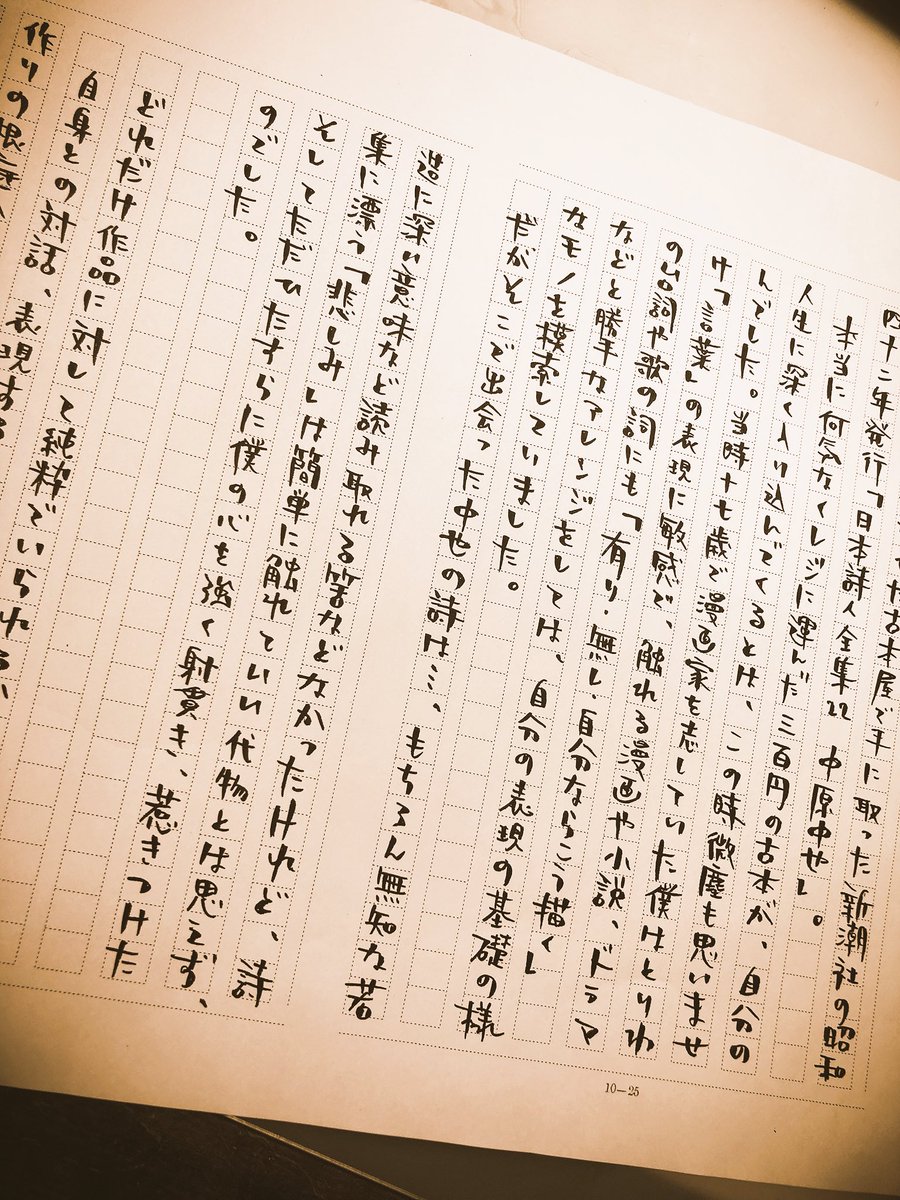 や古本屋で手に取った新潮社の昭和
四十二年発行「日本詩人全集22 中原中也」。
本当に何気なくレジに運んだ三百円の古本が、自分の
人生に深く入り込んでくるとは、この時微塵も思いませ
んでした。当時十七歳で漫画家を志していた僕はとりわ
け「言葉」の表現に敏感で、触れる漫画や小説、ドラマ
の台詞や歌の詞にも「有り・無し・自分ならこう描く」
などと勝手なアレンジをしては、自分の表現の基礎の様
なモノを模索していました。
だがそこで出会った中也の詩は…、もちろん無知な若
造に深い意味など読み取れる筈などなかったけれど、詩
集に漂う「悲しみ」は簡単に触れていい代物とは思えず、
そしてただひたすらに僕の心を強く射貫き、惹きつけた
のでした。
どれだけ作品に対して純粋でいられるか、
自身との対話、表現する
作りの根
10—25